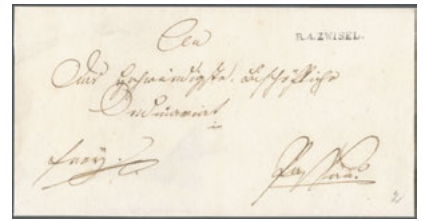 An
R.A.ZWISEL.
Das Hochwürdigste. Bischöfliche
Ordinariat
in
frey.
Passau.
2